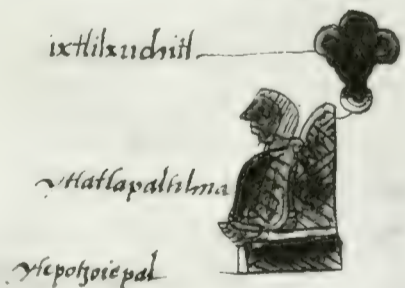 ixtlilxuchitl
ytlatlapaltilma
ytepotzoicpal